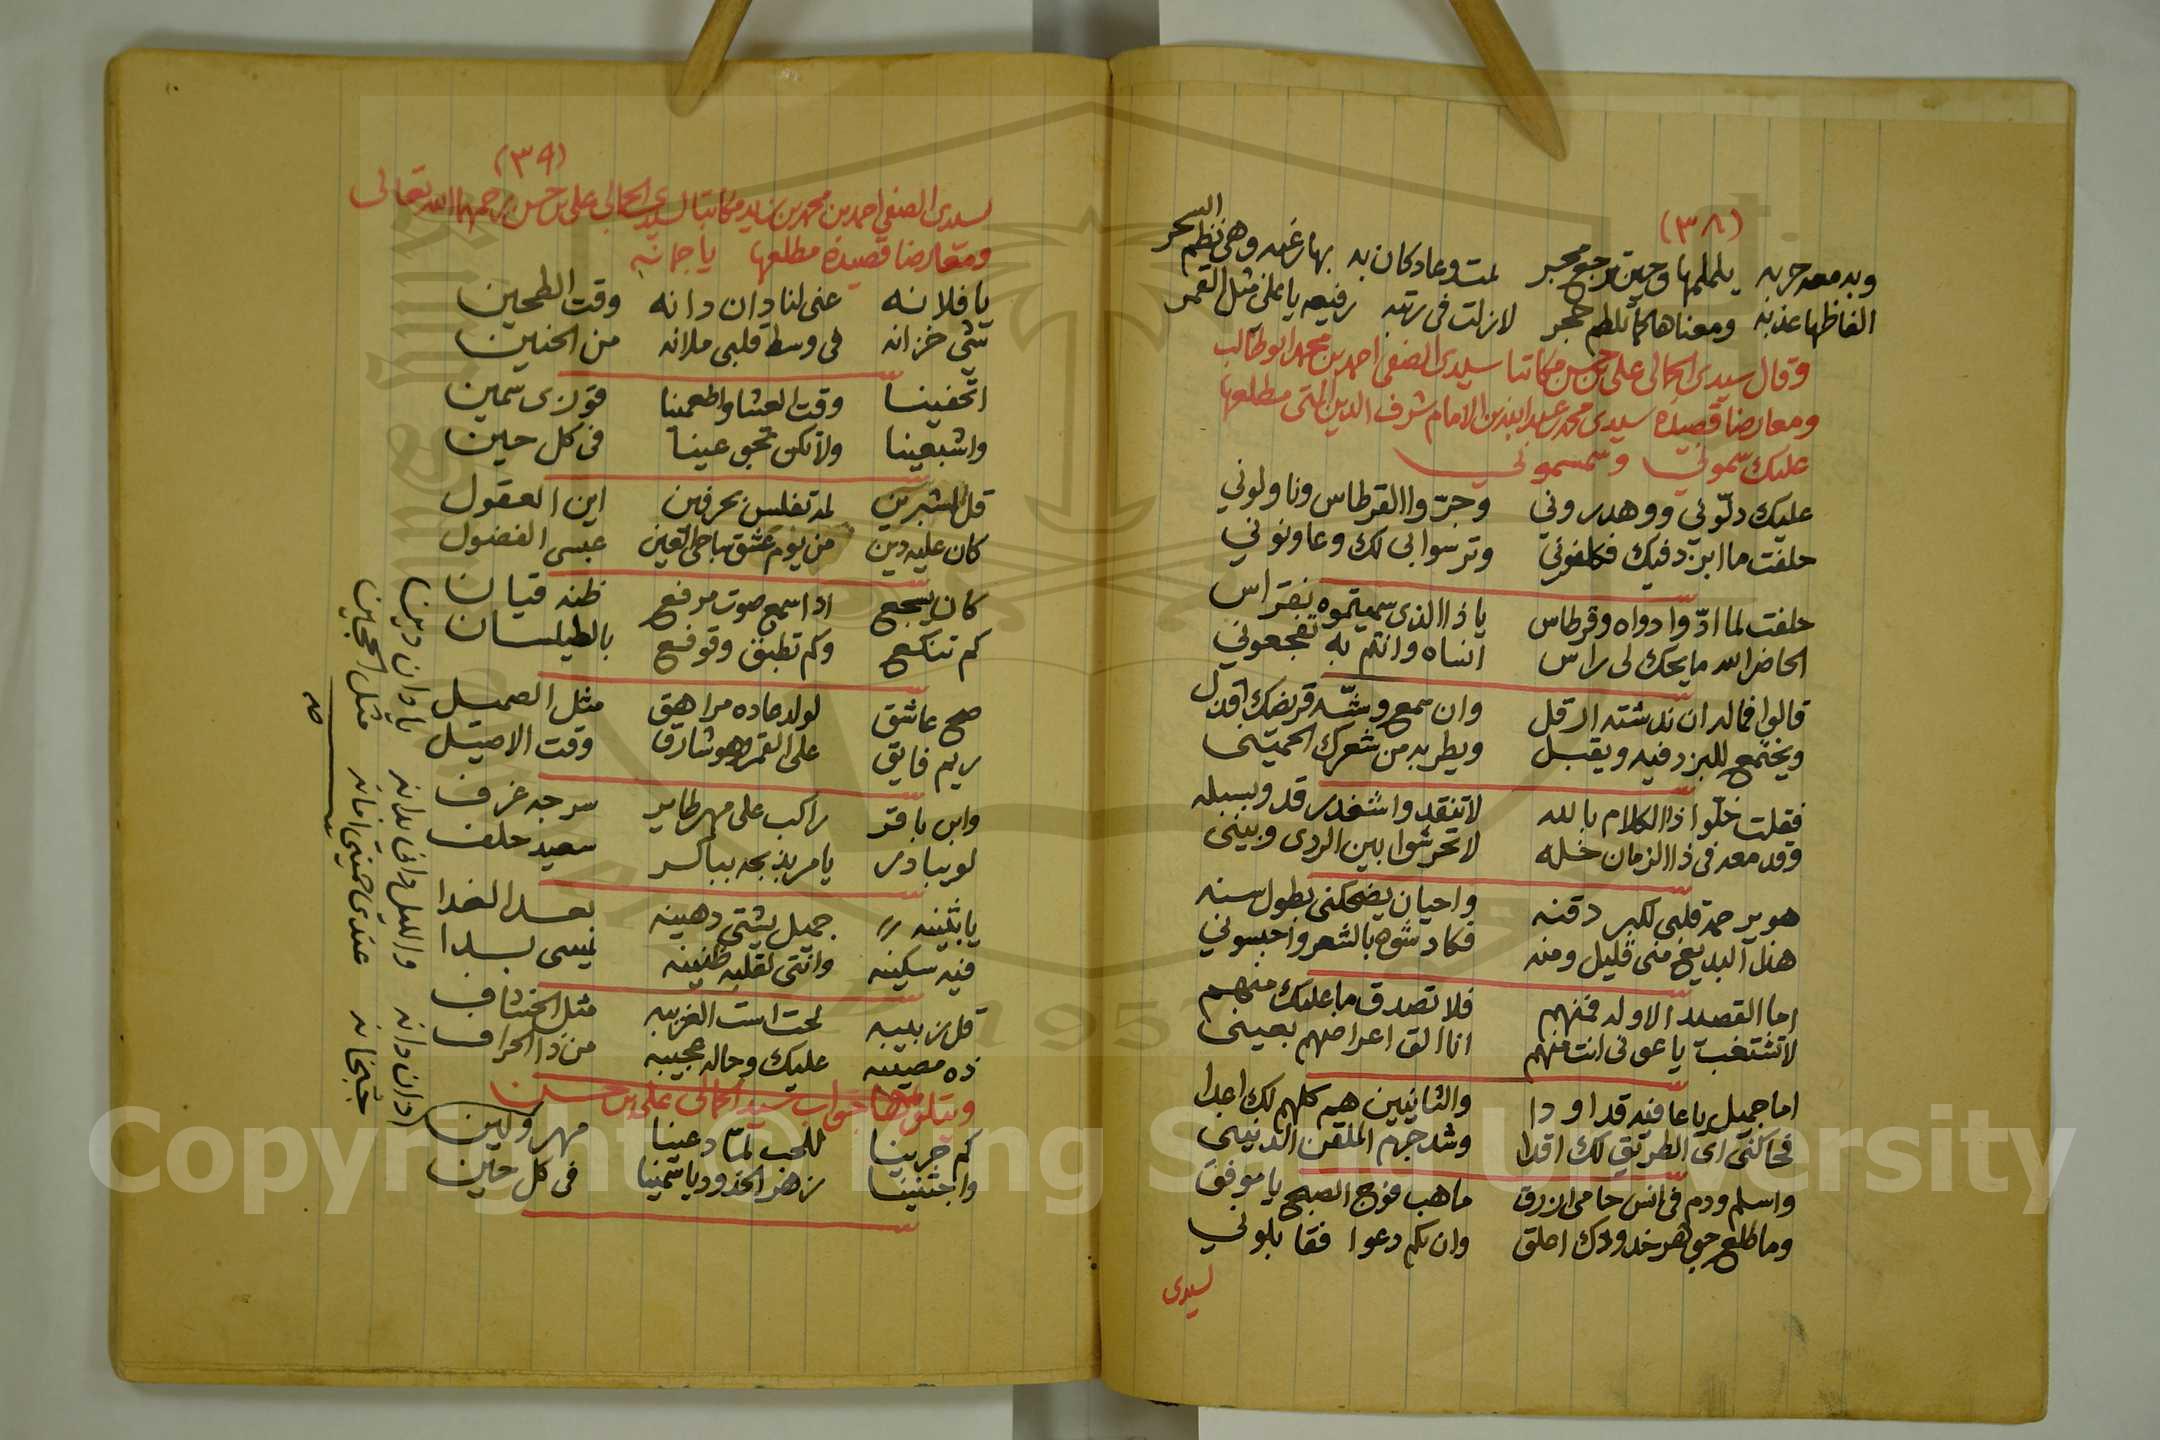 (٣٨)
وبه معه حربه يلملمها وحين ترجع محبر لمت وعاد كان به بها رغبه وهي نظم السحر
الفاظها عذبه ومعناها كما تلطم حجر لازلت في رتبه رفيعه يا علي مثل القمر
وقال سيدي الجمالي علي بن حسن مكاتبا سيدي الصفي احمد بن محمد ابو طالب
ومعارضا قصيدة سيدي محمد عبد الله بن الامام شرف الدين التي مطلعها
عليك سموني وسمسموني
عليك دلوني ووهدروني وجرّوا القرطاس وناولوني
حلفت ما ابزد فيك فكلفوني وترسوا لي لك وعاونوني
حلفت لما ادّوا دواه وقرطاس يا ذا الذي سميتموه بقراس
الحاضر الله ما يحك لي راس انساه وانتم به تفجعوني
قالوا فماله ان ندشته الرقل وان سمع وشّه قريضك اقبل
ويجتمع للبزد فيه ويقبل ويطربه من شعرك الحميني
فقلت خلّوا ذا الكلام بالله لا تنقدوا شغدر قد وبسبله
وقد معه في ذا الزمان خله لا تحرشوا بين الردى وبيني
هو يرحمه قلبي لكبر دقنه واحيان يضحكني بطول سنه
هذا البديع مني قليل ومنه فكاد شوه بالشعر واحبسوني
اما القصيد الاوله فمنهم فلا تصدق ما عليك منهم
لا تشتغب يا عوني انت منهم انا الق اعراضهم بعيني
اما جميل يا عافيه قد اودا والثانيين هم كلهم لك اعدا
فحاكني اي الطريق لك اقدا وشد جرهم الملقن الدنيني
واسلم ودم في انس حامي ازرق ما هب فوج الصبح يا موفق
وما طلع جوهر خدودك احلق وان بكم دعوا فقابلوني
لسيدي
(٣٩)
لسيدي الصفي احمد بن محمد بن زيد مكاتبا لسيدي الجمالي علي بن حسن رحمهما الله تعالى
ومعارضا قصيدة مطلعها يا جمانه
يا فلانه غني لنا دان دانه وقت الطحين
شي خزانه في وسط قلبي ملانه من الحنين
اتحفينا وقت العشا واطعمينا قوزي سمين
واشبعينا ولا تكن تحبق عينا في كل حين
قل لشبرين لمه تفلس بحرفين اين العقول
كان عليه دين من يوم عشق بها حي القين عبسى الفضول
كان يسجع اذا سمع صوت مرفع ظنه قيان
كم تنكع وكم تطبق وقوقع بالطيلسان
صح عاشق لولد عاده مراهق مثل الصميل
ريم فايق على القمر وهو شارق وقت الاصيل
وابن باقر راكب على مهر طاير سرجه غرف
لو يبادر يا مريد بجه بباكر سعيد حلف
يا بثينه جميل يشتي دهينه بعد الغدا
فيه سكينه وانتي لقلبه ظنينه نيسى بدا
قل زبيبه تحت است الغريبه مثل الخشاف
ذه مصيبه عليك وحاله عجيبه من ذا الحراف
ويتلوها جواب سيدي الجمالي علي بن حسن
كم جرينا للحب لمّا دعينا مهرولين
واجتنينا زهر الخدود ياسمينا في كل حين
دان دانه والليل داني بدانه يا دان دين
جبخانه عندي حميني امانه مثل العجين
صه